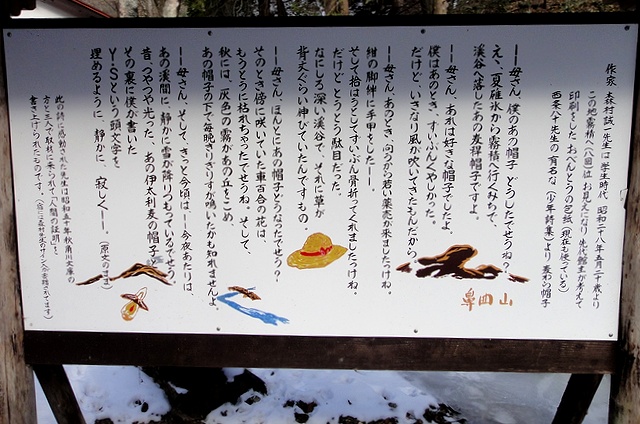 作家 森村誠一先生は学生時代、昭和二十八年五月二十歳より
この地霧積へ(八回)は お見えになり 先代館主が考えて
印刷をした、おべんとうの包紙(現在も使っている)
西条八十先生の有名な〈少年詩集〉より麦わら帽子
──母さん、僕のあの帽子 どうしたでせうね?
ええ、夏碓氷から霧積へ行くみちで、
渓谷へ落したあの麦稈帽子ですよ。
──母さん、あれは好きな帽子でしたよ。
僕はあのとき、ずいぶんくやしかった。
だけど、いきなり風が吹いてきたもんだから。
──母さん、あのとき、向うから若い薬売が来ましたっけね。
紺の脚絆に手甲をした──。
そして拾はうとしてずいぶん骨折ってくれましたっけね。
だけどとうとう駄目だった。
なにしろ深い渓谷で、それに草が
背丈ぐらい伸びていたんですもの。
──母さん、ほんとにあの帽子どうなったでせう?
そのとき傍に咲いていた車百合の花は
もうとうに枯れちゃったでせうね。そして、
秋には、灰色の霧があの丘をこめ、
あの帽子の下で毎晩きりぎりすが鳴いたかも知れませんよ。
──母さん、そして、きっと今頃は──今夜あたりは、
あの渓間に、静かに雪が降りつもっているでせう。
昔、つやつや光った、あの伊太利麦の帽子と
その裏に僕が書いた
Y・Sという頭文字を
埋めるように、静かに、寂しく──。
(原文のまま)
此の詩に感動された先生は昭和五十年秋角川文庫の
方と三人で取材に来られて「人間の証明」を
書き上げられたものです。
山四鼻